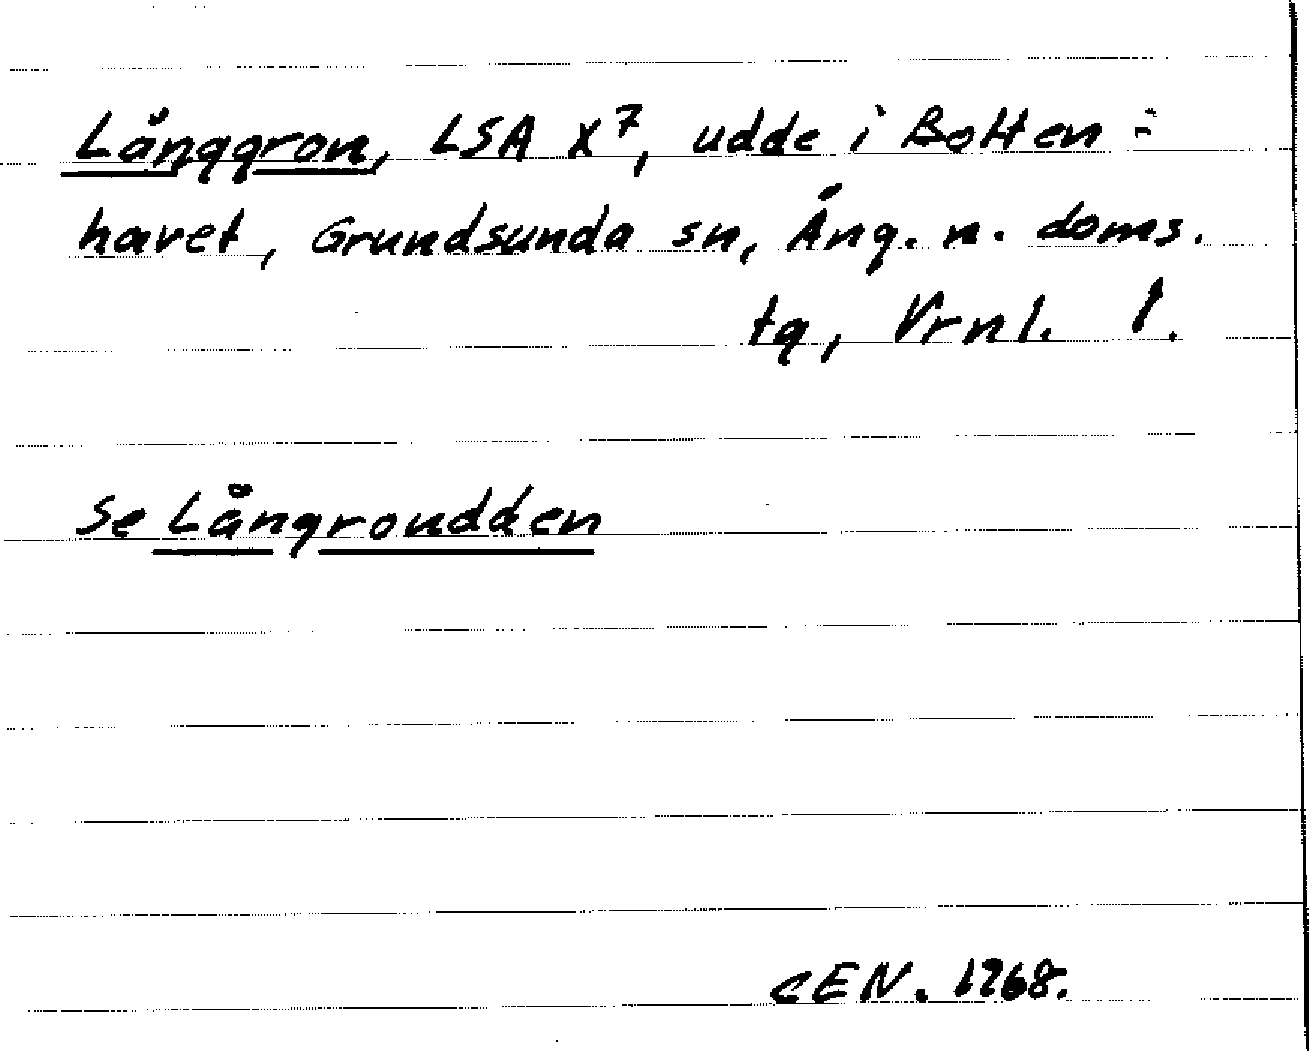 Långgron, LSA X7, udde i Botten-
havet, Grundsunda sn, Ång. n. doms.
tg, Vrnl. !.
Se Långroudden
CEN. 1968.